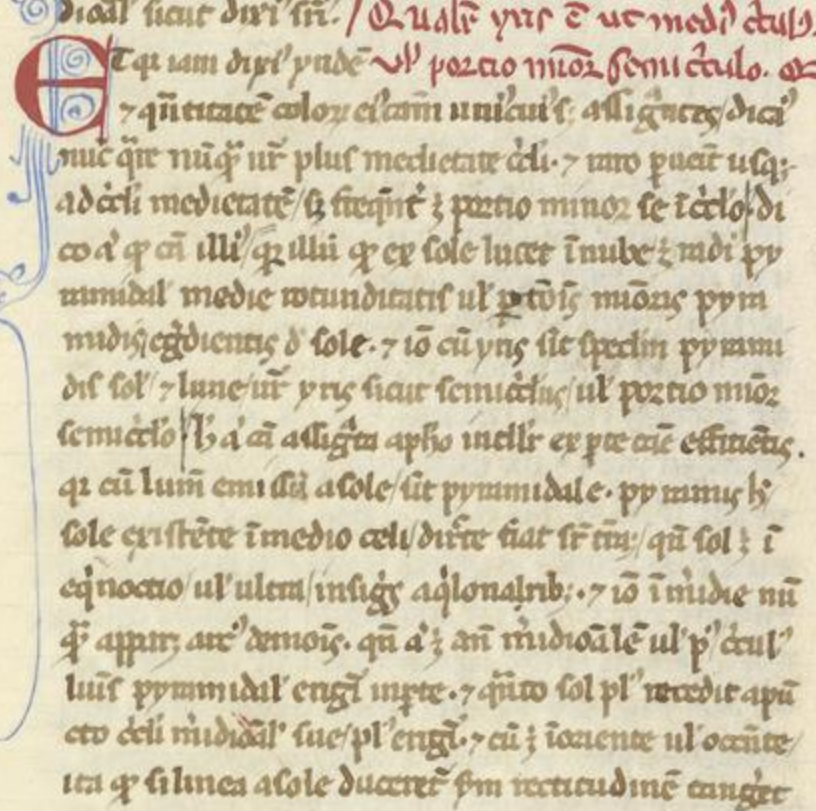 dicāl' sicut dixi' sr̄i. / Qualr̄ yris ē ut medi' c̄cul'
ET qr iam dixi' yridē vl' portio miōr semic̄culo.
⁊ qn̄titatē color ei' cām unicui'; assignātes / dicā'
nūc qr̄e nūq̄ ur̄ plus medietate c̄cli. ⁊ raro ꝑueīt usq;
ad c̄cli medietatē / sꝫ freqn̄t' ꝫ portio minor se ī c̄clo. di
co a' ꝙ cā illi' / qr illū ꝙ ex sole lucet ī nube ꝫ radi' py
ramidal' medie rotunditatis ul' portōis miōris pyra
midis egr̄dientis d' sole. ⁊ iō cū yris sit speclm̄ pyrami
dis sol' / ⁊ lune / ur̄ yris sicut semic̄clus / ul' portio miōr
semic̄clo / h' a' cā assignta a pho intell'r ex ꝑte cāe effitiētis.
qr cū lum̄ emissū a sole / sit pyramidale. pyramis h'
sole existēte ī medio celi / dir̄cte fiat sr̄ tr̄a; / qn̄ sol ꝫ ī
eq̄noctio / ul' ultra / in signis aq̄lonalrib;. ⁊ iō ī m̄idie nū
q̄ apparꝫ arc' demois. qn̄ a' ꝫ an̄ m̄idioālē ul' p' c̄cul'
lūis pyramidal' erigit' in ꝑte. ⁊ qn̄to sol pl' recedit a pū
cto c̄cli m̄idioāl' sue / pl' erigit'. ⁊ cū ꝫ ī oriente ul' occn̄te /
ita ꝙ si linea a sole ducerēt' sm̄ rectitudinē tangēt